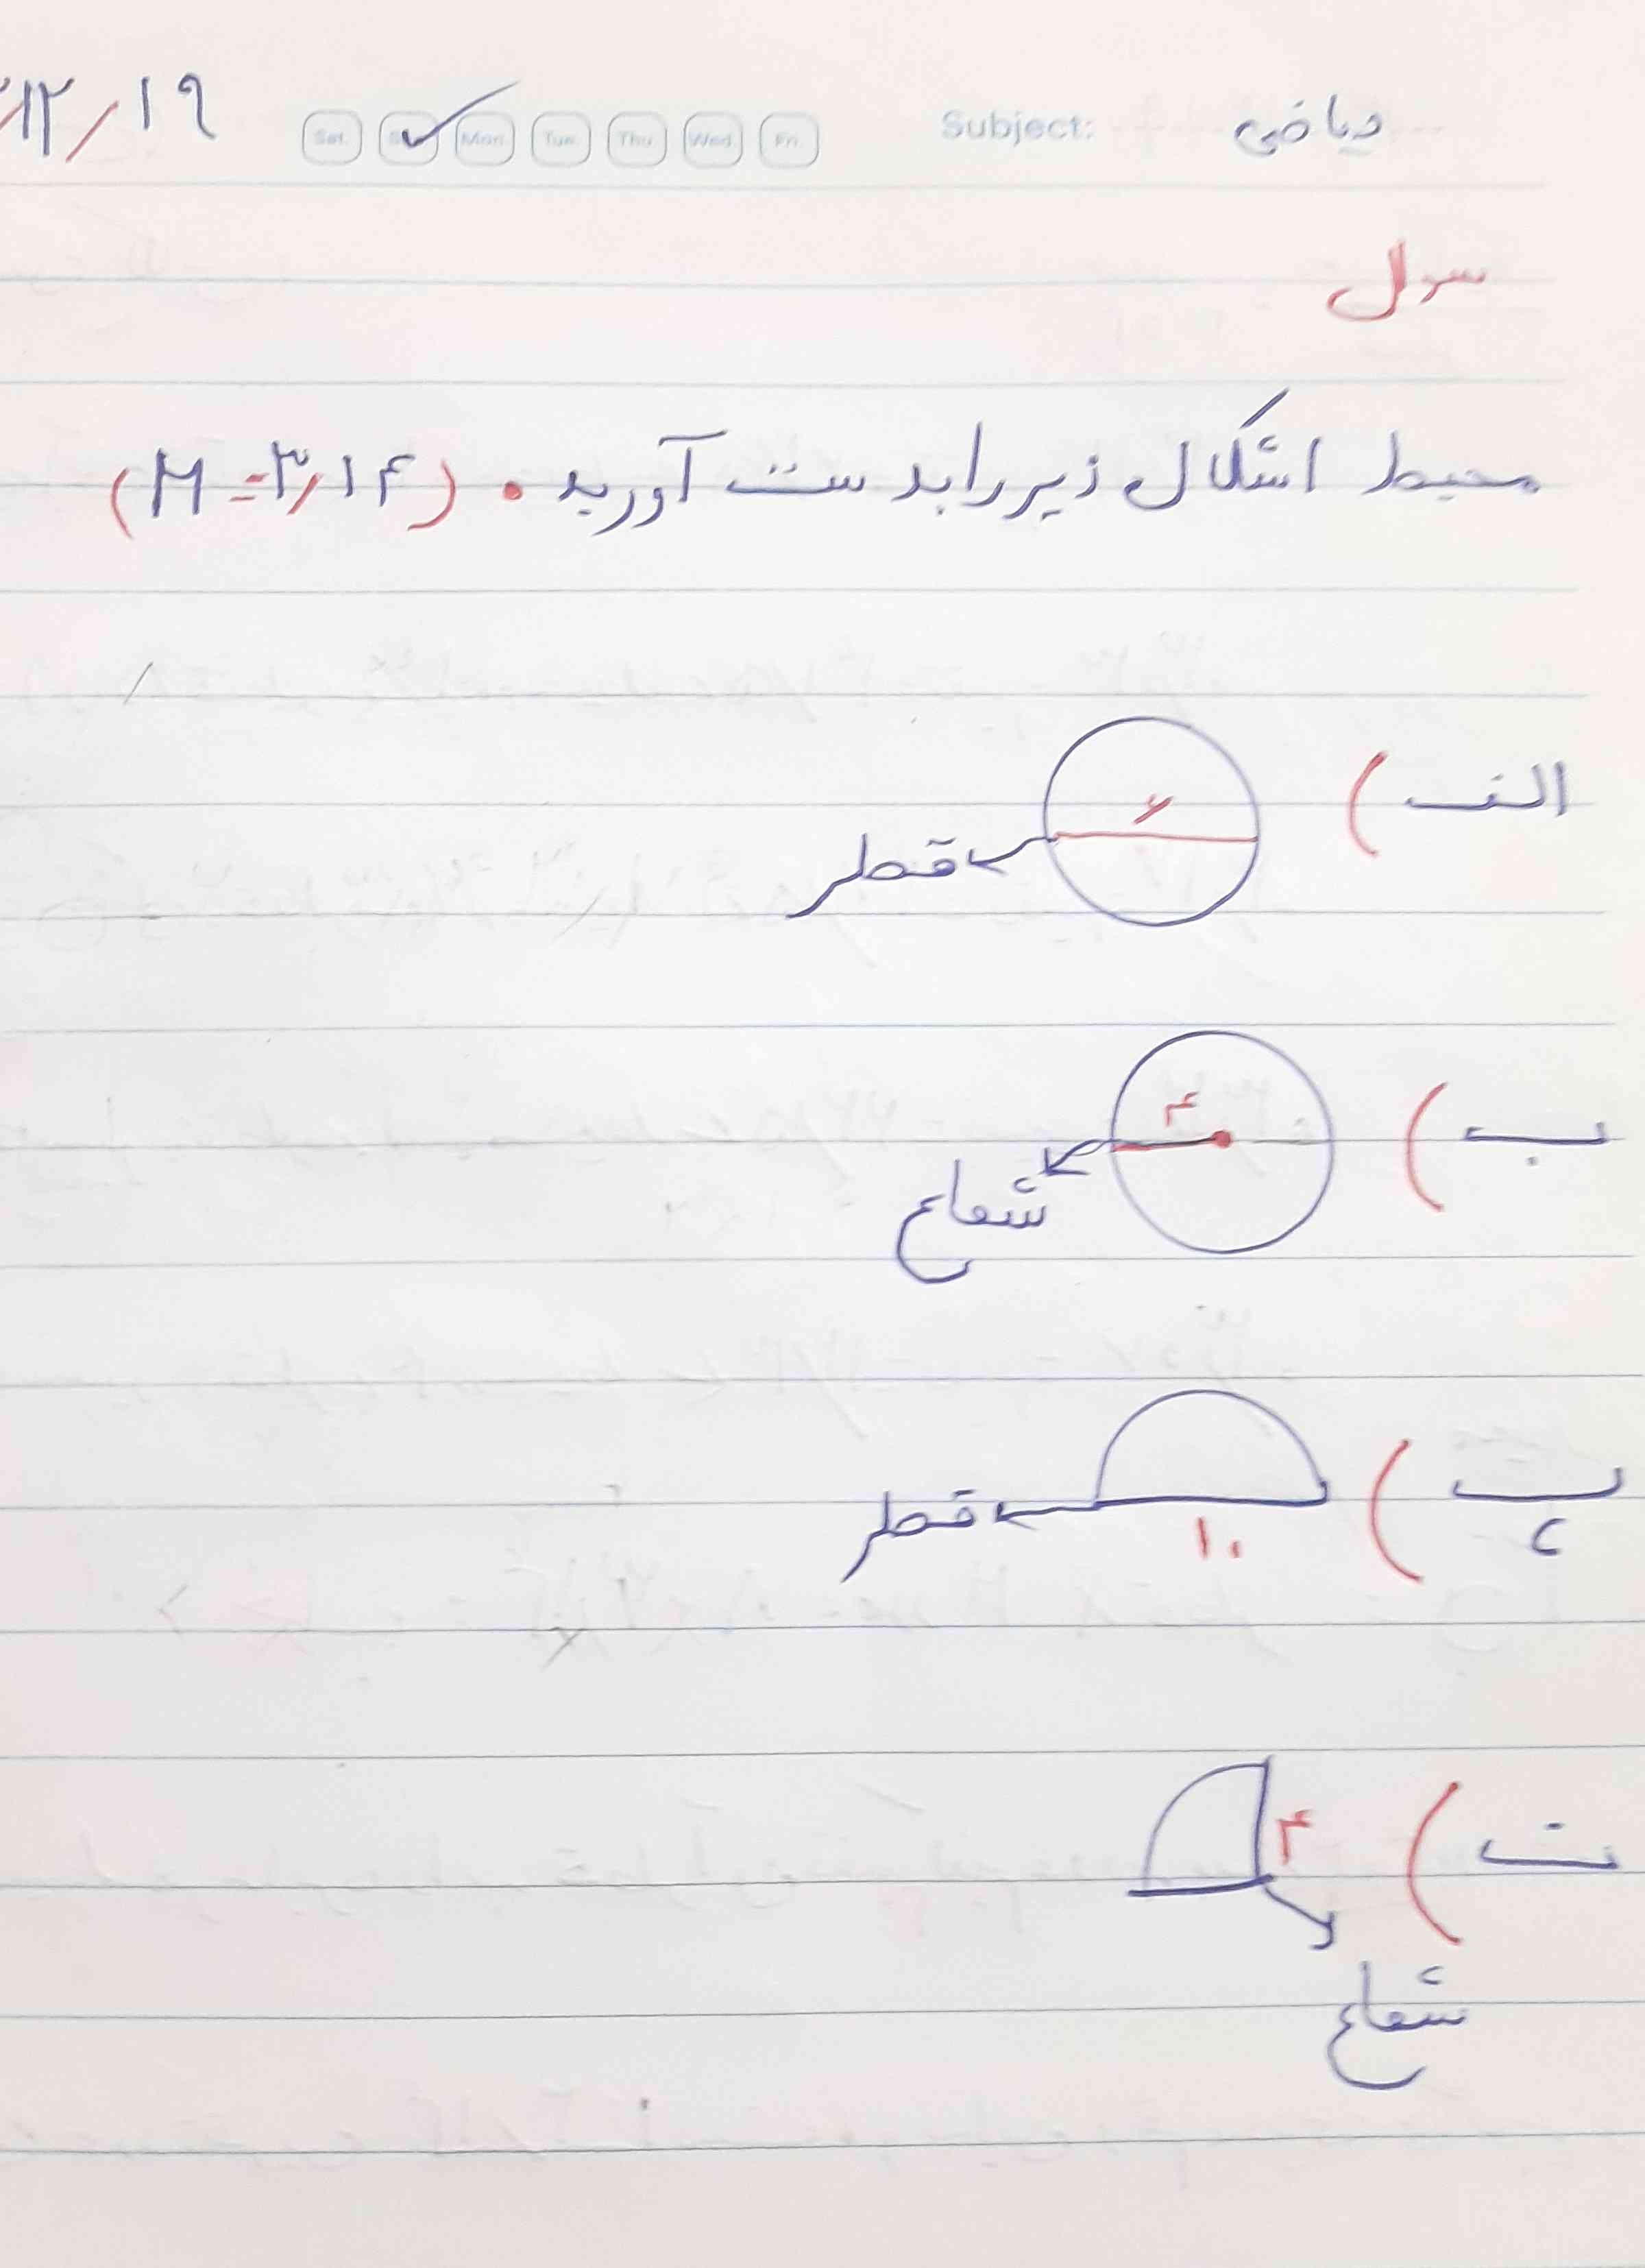 ریاضی Subject: Sat. Mon. Tue. Thu. Wed. Fri. ۱۲/۱۹
سوال
محیط اشکال زیر را بدست آورید. (π=۳/۱۴)
الف) ۶
قطر
ب) ۴
شعاع
پ) ۱۰
قطر
ت) ۴
شعاع